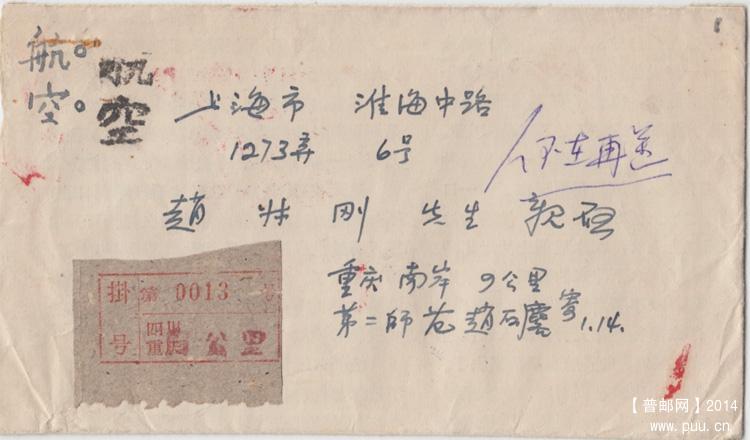 航。
空。
航
空
上海市 淮海中路
1273弄 6号
人不在再送
趙 刚 先生 親啓
重庆 南岸 9公里
第二師范 趙石 寄 1.14.
掛 第 0013 号
号 四川
重庆 公里
【普邮网】2014
www.puu.cn